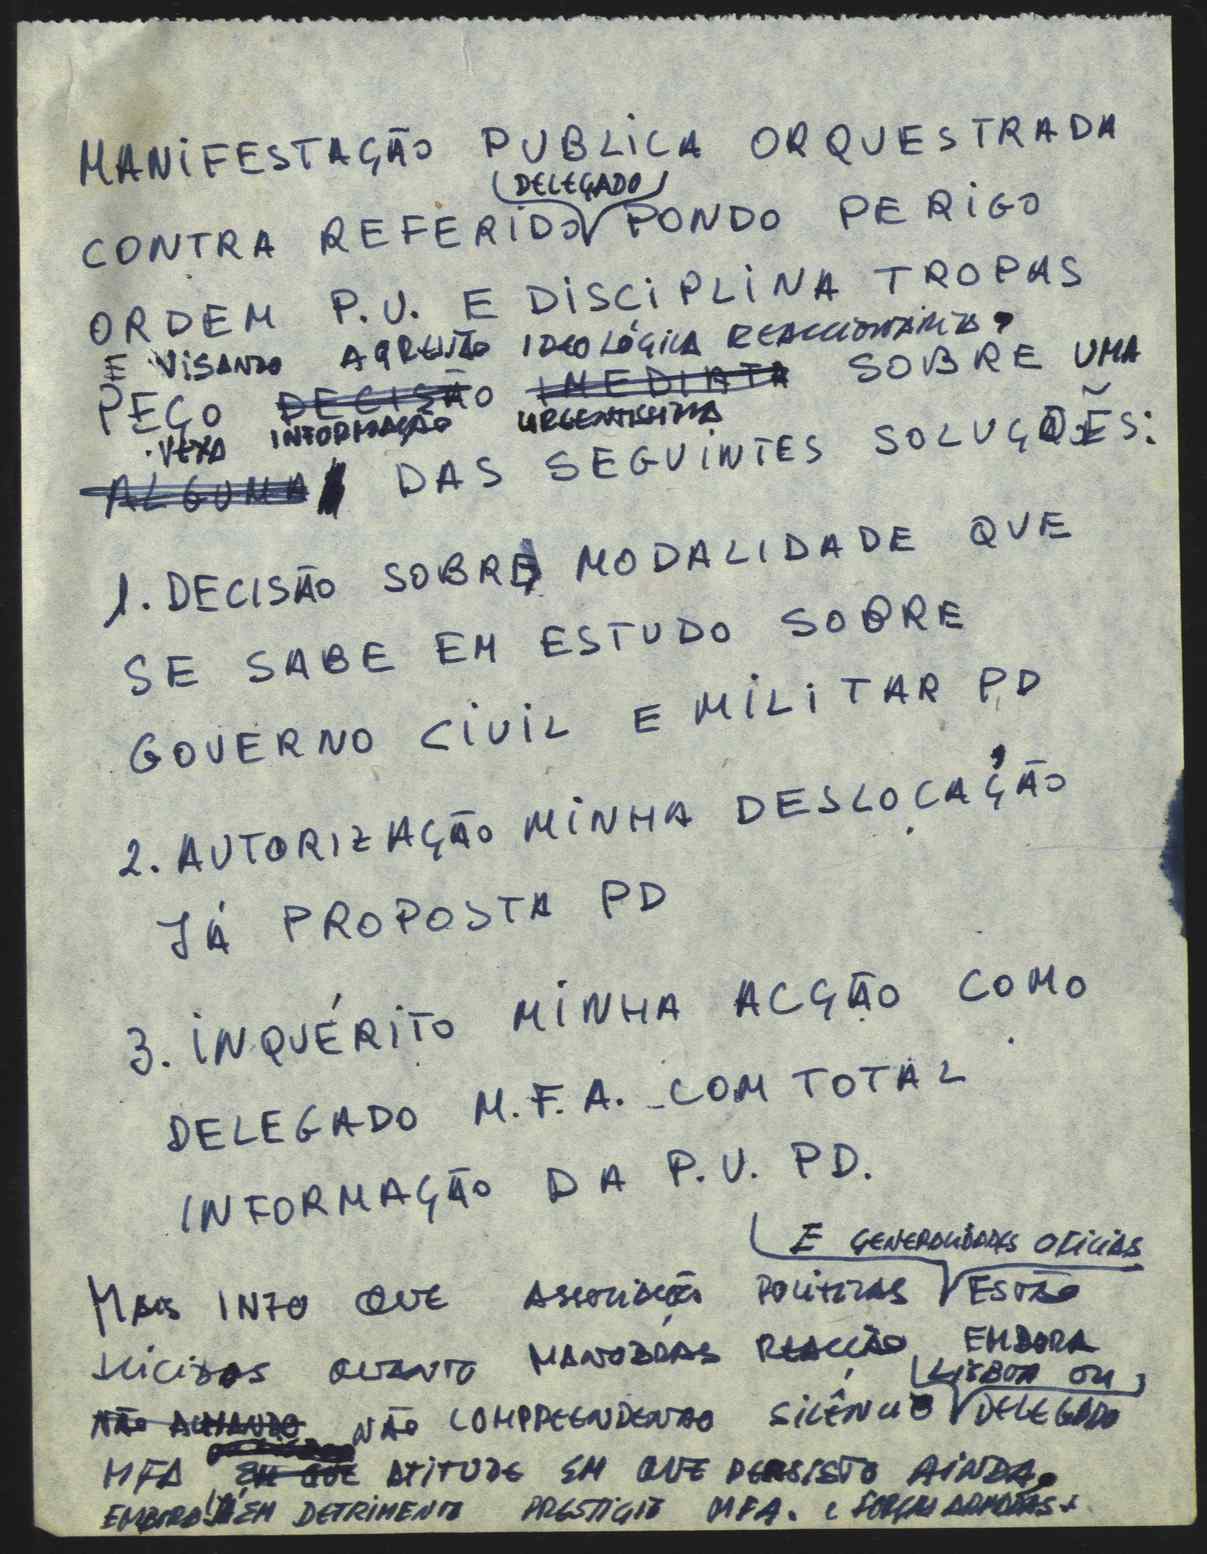 MANIFESTAÇÃO PUBLICA ORQUESTRADA
DELEGADO
CONTRA REFERIDO PONDO PERIGO
ORDEM P.U. E DISCIPLINA TROPAS
E VISANDO AGRESSÃO IDEOLÓGICA REACCIONÁRIA.
PEÇO DECISÃO IMEDIATA SOBRE UMA
VEXA INFORMAÇÃO URGENTISSIMA
ALGUMA DAS SEGUINTES SOLUÇÕES:
1. DECISÃO SOBRE MODALIDADE QUE
SE SABE EM ESTUDO SOBRE
GOVERNO CIVIL E MILITAR PD
2. AUTORIZAÇÃO MINHA DESLOCAÇÃO
JÁ PROPOSTA PD
3. INQUÉRITO MINHA ACÇÃO COMO
DELEGADO M.F.A. COM TOTAL
INFORMAÇÃO DA P.U. PD.
E GENERALIDADES OFICIAS
MAIS INFO QUE ASSOCIAÇÃO POLITICAS ESTÃO
QUANTO MANOBRAS REACÇÃO EMBORA
LISBOA OU
NÃO NÃO COMPREENDENDO SILÊNCIO DELEGADO
MFA EM QUE ATITUDE EM QUE PERSISTO AINDA,
EMBORA JÁ EM DETRIMENTO PRESTIGIO MFA. E FORÇAS ARMADAS.